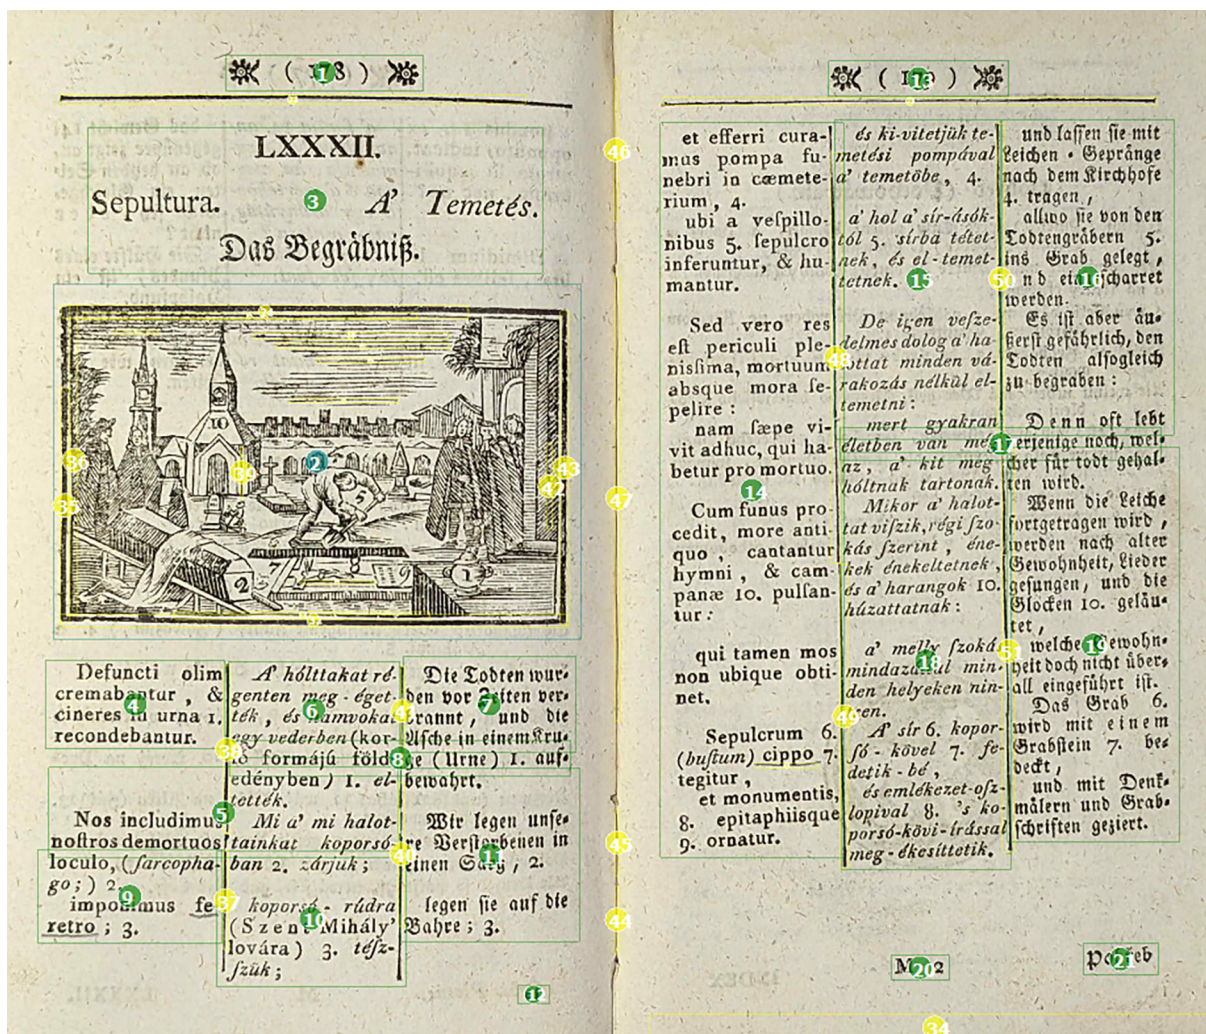 ( 178 )
LXXXII.
Sepultura. A' Temetés.
Das Begräbniß.
10
5
6
7
9
2
1
Defuncti olim
cremabantur, &
cineres in urna 1.
recondebantur.
Nos includimus
noſtros demortuos
loculo, (ſarcopha-
go;) 2.
imponimus fe-
retro; 3.
A' hólttakat ré-
genten meg-éget-
ték, és hamvokat
egy vederben (kor-
só formájú föld
edényben) 1. el-
tették.
Mi a' mi halot-
tainkat koporsó-
ban 2. zárjuk;
koporsó-rúdra
(Szent Mihály'
lovára) 3. téſz-
ſzük;
Die Todten wur-
den vor Zeiten ver-
brannt, und die
Aſche in einem Kru-
ge (Urne) 1. auf-
bewahrt.
Wir legen unſe-
re Verſtorbenen in
einen Sarg, 2.
legen ſie auf die
Bahre; 3.
( 179 )
et efferri cura-
mus pompa fu-
nebri in cæmete-
rium, 4.
ubi a veſpillo-
nibus 5. ſepulcro
inferuntur, & hu-
mantur.
Sed vero res
eſt periculi ple-
niſſima, mortuum
absque mora ſe-
pelire:
nam ſæpe vi-
vit adhuc, qui ha-
betur pro mortuo.
Cum funus pro-
cedit, more anti-
quo, cantantur
hymni, & cam-
panæ 10. pulſan-
tur:
qui tamen mos
non ubique obti-
net.
Sepulcrum 6.
(buſtum) cippo 7.
tegitur,
et monumentis,
8. epitaphiisque
9. ornatur.
és ki-vitetjük te-
metési pompával
a' temetöbe, 4.
a' hol a' sír-ásók-
tól 5. sírba tétet-
nek, és el-temet-
tetnek.
De igen veſze-
delmes dolog a' ha-
lottat minden vá-
rakozás nélkül el-
temetni:
mert gyakran
életben van még
az, a' kit meg
hóltnak tartonak.
Mikor a' halot-
tat viſzik, régi ſzo-
kás ſzerint, éne-
kek énekeltetnek,
és a' harangok 10.
húzattatnak:
a' melly ſzokás
mindazáltal min-
den helyeken nin-
csen.
A' sír 6. kopor-
só-kövel 7. fe-
detik-bé,
és emlékezet-oſz-
lopival 8. 's ko-
porsó-kövi-írással
meg-ékesíttetik.
und laſſen ſie mit
Leichen-Gepränge
nach dem Kirchhofe
4. tragen,
allwo ſie von den
Todtengräbern 5.
ins Grab gelegt,
und eingeſcharret
werden.
Es iſt aber äu-
ßerſt gefährlich, den
Todten alſogleich
zu begraben:
Denn oft lebt
derjenige noch, wel-
cher für todt gehal-
ten wird.
Wenn die Leiche
fortgetragen wird,
werden nach alter
Gewohnheit, Lieder
geſungen, und die
Glocken 10. geläu-
tet,
welche Gewohn-
heit doch nicht über-
all eingeführt iſt.
Das Grab 6.
wird mit einem
Grabſtein 7. be-
deckt,
und mit Denk-
mälern und Grab-
ſchriften geziert.